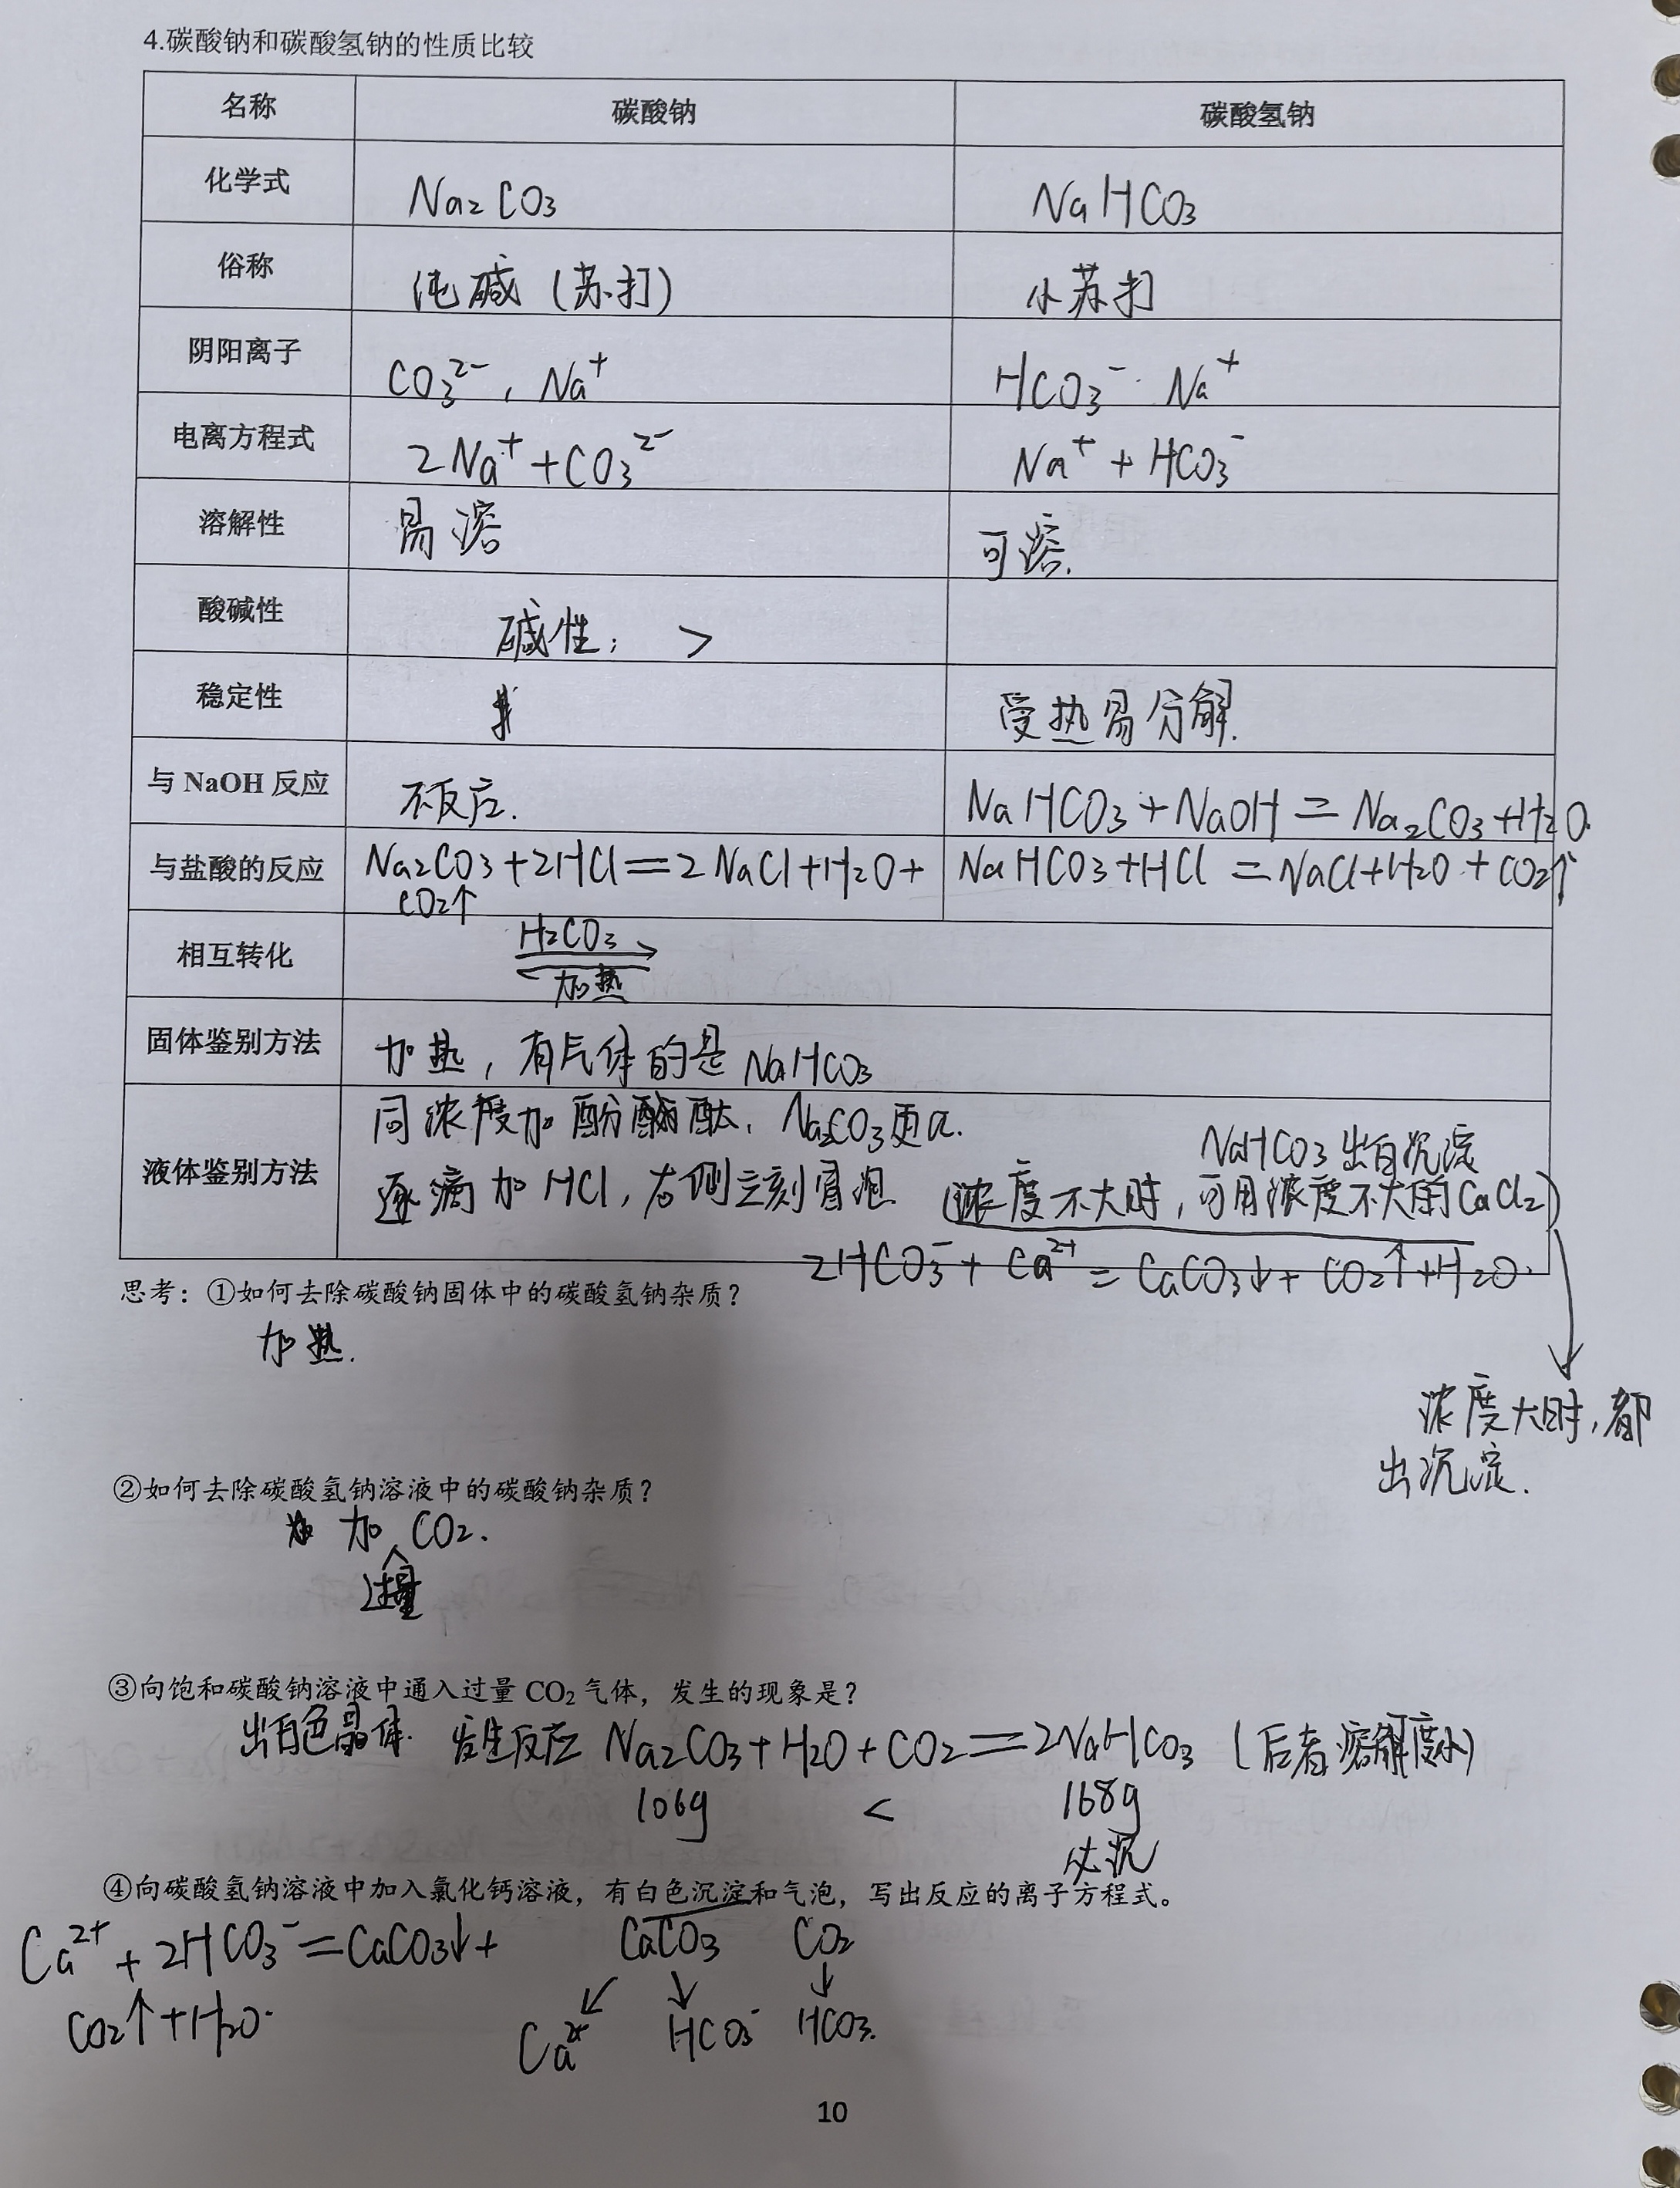 4.碳酸钠和碳酸氢钠的性质比较
名称 碳酸钠 碳酸氢钠
化学式 Na₂CO₃ NaHCO₃
俗称 纯碱（苏打） 小苏打
阴阳离子 CO₃²⁻，Na⁺ HCO₃⁻ Na⁺
电离方程式 2Na⁺+CO₃²⁻ Na⁺+HCO₃⁻
溶解性 易溶 可溶.
酸碱性 碱性； >
稳定性 受热易分解.
与 NaOH 反应 不反应. NaHCO₃+NaOH=Na₂CO₃+H₂O.
与盐酸的反应 Na₂CO₃+2HCl=2NaCl+H₂O+ NaHCO₃+HCl=NaCl+H₂O+CO₂↑
CO₂↑
相互转化 H₂CO₃
加热
固体鉴别方法 加热，有气体的是NaHCO₃
液体鉴别方法 同浓度加酚酞，Na₂CO₃更红.
NaHCO₃出白沉淀
逐滴加HCl，右侧立刻冒泡. （浓度不大时，可用浓度不大的CaCl₂）
2HCO₃⁻+Ca²⁺=CaCO₃↓+CO₂↑+H₂O.
浓度大时，都
出沉淀.
思考：①如何去除碳酸钠固体中的碳酸氢钠杂质？
加热.
②如何去除碳酸氢钠溶液中的碳酸钠杂质？
加CO₂.
过量
③向饱和碳酸钠溶液中通入过量 CO₂ 气体，发生的现象是？
出白色晶体. 发生反应 Na₂CO₃+H₂O+CO₂=2NaHCO₃（后者溶解度小）
106g < 168g
必沉
④向碳酸氢钠溶液中加入氯化钙溶液，有白色沉淀和气泡，写出反应的离子方程式。
Ca²⁺+2HCO₃⁻=CaCO₃↓+ CaCO₃ CO₂
CO₂↑+H₂O. Ca²⁺ HCO₃⁻ HCO₃.
10